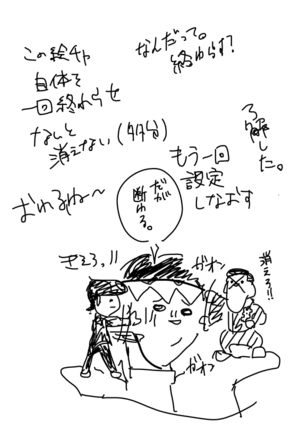 この絵チャ
自体を
一回終わらせ
ないと
消えない(多分)
なんだって。
終わらす?
了解した。
もう一回
設定
しなおす
おわるね〜
だが
断わる。
きえろっ!!
消えろ!!
ガオン
ガオン